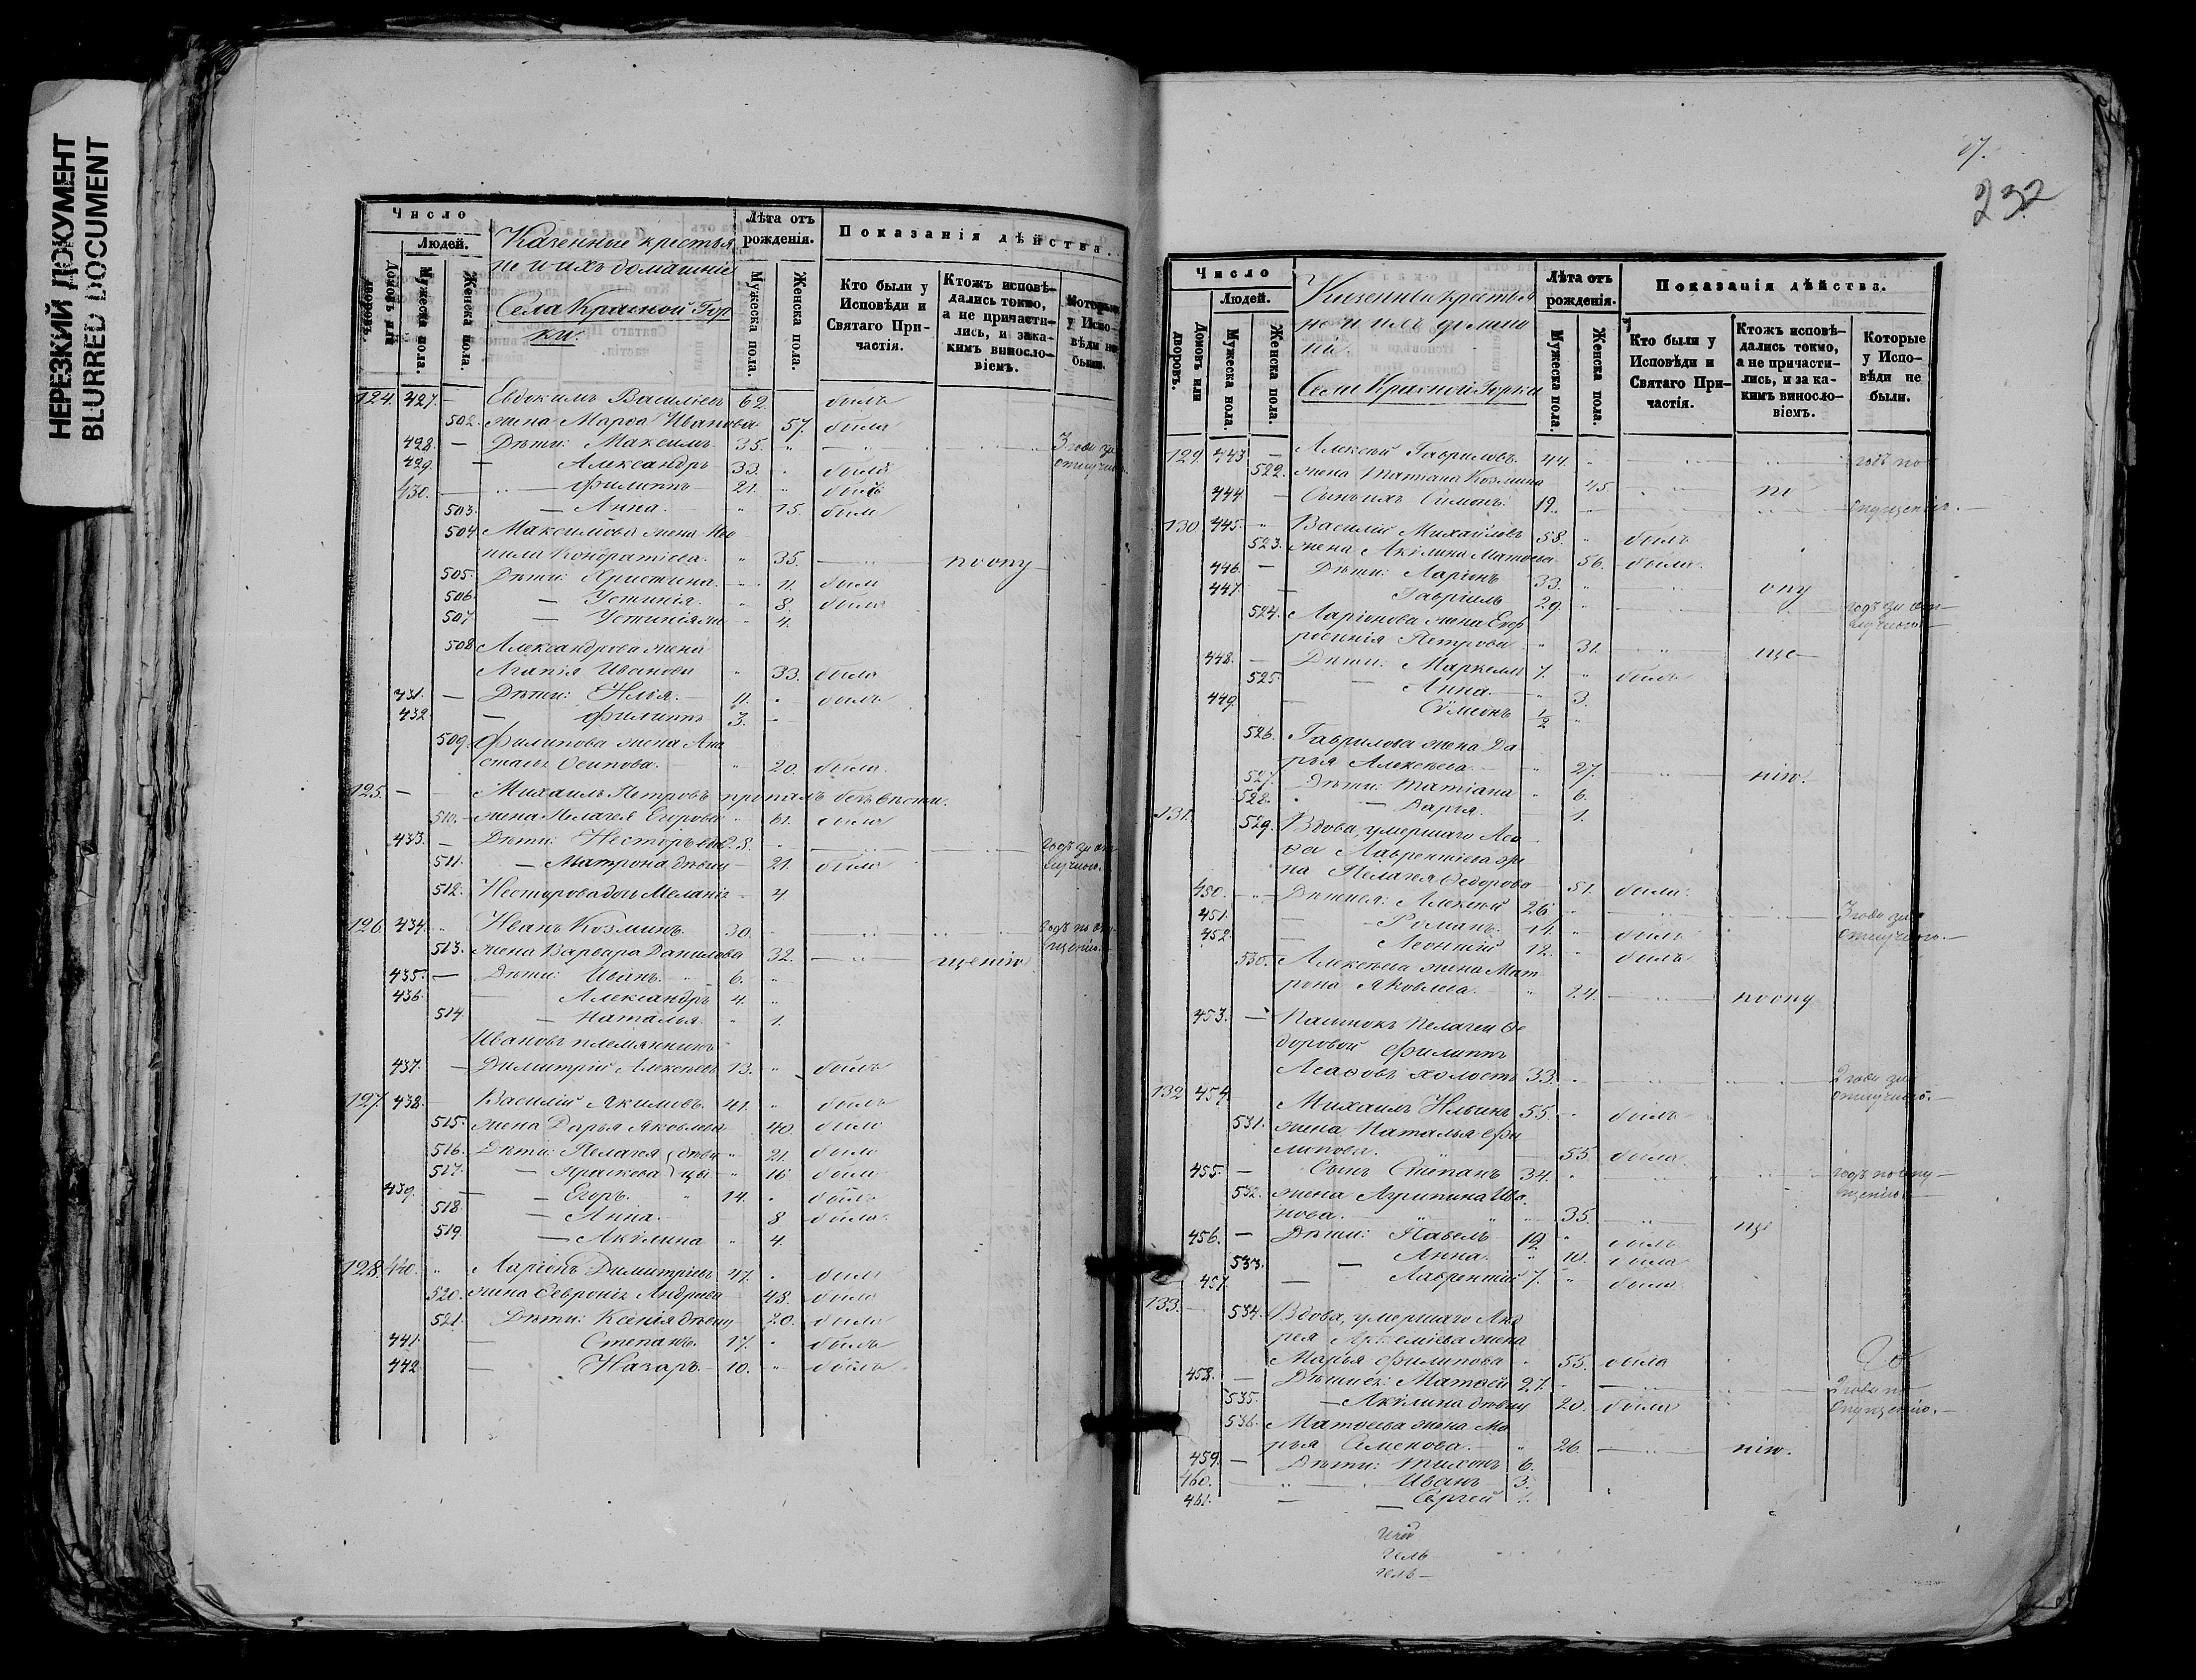 НЕРЕЗКИЙ ДОКУМЕНТ
BLURRED DOCUMENT
Число
Людей.
Домовъ или дворовъ.
Мужеска пола.
Женска пола.
Казенные крестья
не и ихъ домашніе
Села Красной Гор
ки.
Лѣта отъ рожденія.
Мужеска пола.
Женска пола.
Показанія дѣйства.
Кто были у Исповѣди и Святаго Причастія.
Ктожъ исповѣдались токмо, а не причастились, и за какимъ винословіемъ.
Которые у Исповѣди не были.
124. 427. — Евдокимъ Василіевъ 62. былъ
502. жена Марѳа Иванова 57. была
428. — Дѣти: Максимъ 35. 3 года за
429. — Александръ 33. былъ отлучкою.
430. — Филиппъ 21. былъ
503. — Анна. 15. была
504. Максимова жена Нео
нила Кондратіева. 35. по опу
505. Дѣти: Христина. 11. была
506. — Устинія. 8. была
507. — Устинія 4.
508. Александрова жена
Агапія Иванова 33. была
431. — Дѣти: Илія. 11. былъ
432. — Филиппъ 3.
509. Филипова жена Ана
стасія Осипова. 20. была.
125. — Михаилъ Петровъ пропалъ безъ вѣсти.
510. жена Пелагея Егорова 61. была
433. — Дѣти: Несторъ 28. годъ за от
511. — Матрона дѣвиц 21. была лучкою.
512. Нестерова дочь Меланія 4.
126. 434. Иванъ Козминъ. 30. годъ по опу
513. жена Варвара Данилова 32. щенію щенію.
435. — Дѣти: Иванъ. 6.
436. — Александръ 4.
514. — Наталья. 1.
Ивановъ племянникъ
437. — Димитрій Алексѣевъ 13. былъ
127. 438. Василій Якимовъ. 41. былъ
515. жена Дарья Яковлева 40. была
516. Дѣти: Пелагея } дѣви 21. была
517. — Праскева } цы 16. была
439. — Егоръ. 14. былъ
518. — Анна. 8. была.
519. — Акилина 4.
128. 440. Ларіонъ Димитріевъ 47. былъ
520. жена Февронія Андреева 48. была
521. Дѣти: Ксенія дѣвиц 20. была
441. — Степанъ. 17. былъ
442. — Назаръ. 10. былъ.
17.
232
Число
Людей.
Домовъ или дворовъ.
Мужеска пола.
Женска пола.
Казенные крестья
не и ихъ домаш
ніи.
Села Красной Горки
Лѣта отъ рожденія.
Мужеска пола.
Женска пола.
Показанія дѣйства.
Кто были у Исповѣди и Святаго Причастія.
Ктожъ исповѣдались токмо, а не причастились, и за какимъ винословіемъ.
Которые у Исповѣди не были.
129. 443. Алексѣй Гавриловъ. 44. годъ по
522. жена Татіана Козмина 45.
444. — Сынъ ихъ Симонъ. 19. опущенію. —
130. 445. Василій Михайловъ 58. былъ
523. жена Акилина Матѳеева 56. была.
446. — Дѣти: Ларіонъ 33. опу
447. — Гавріилъ 29. годъ за от—
524. Ларіонова жена Евф лучкою —
росинія Петрова 31. ще—
448. — Дѣти: Маркелъ 7. былъ
525. — Анна. — 3.
449. — Сѵмеонъ ½
526. Гаврилова жена Да
рья Алексѣева 27. нію.
527. Дѣти: Татіана 6.
528. — Дарья. 1.
131. 529. Вдова, умершаго Аса
фа Лаврентіева же
на Пелагея Ѳедорова 51. была.
450. Дѣти ея: Алексѣй 26. 3 года за
451. — Романъ. 14. былъ отлучкою. —
452. — Леонтій 12. былъ
530. Алексѣева жена Мат
рона Яковлева. 24. по опу
453. — Пасынокъ Пелагеи Ѳе
доровой Филиппъ
Асафовъ холостъ 33. 2 года за
132. 454. Михаилъ Ильинъ 55. былъ отлучкою. —
531. жена Наталья Фи
липова. 55. была.
455. — Сынъ Степанъ 34. годъ по опу—
532. жена Агрипина Ива щенію —
нова. 35. ще
456. — Дѣти: Павелъ 19. былъ
533. — Анна. 10. была
457. — Лаврентій 7. былъ
133. — 534. Вдова, умершаго Анд
рея Артеміева жена
Марья Филипова 55. была
458. — Дѣти ея: Матѳей 27. 2 года по
535. — Акилина дѣвиц 20. была опущенію. —
536. Матѳеева жена Ма
рья Семенова. 26. нію.
459. — Дѣти: Тихонъ 6.
460. Иванъ 3.
461. — Сергей 1.